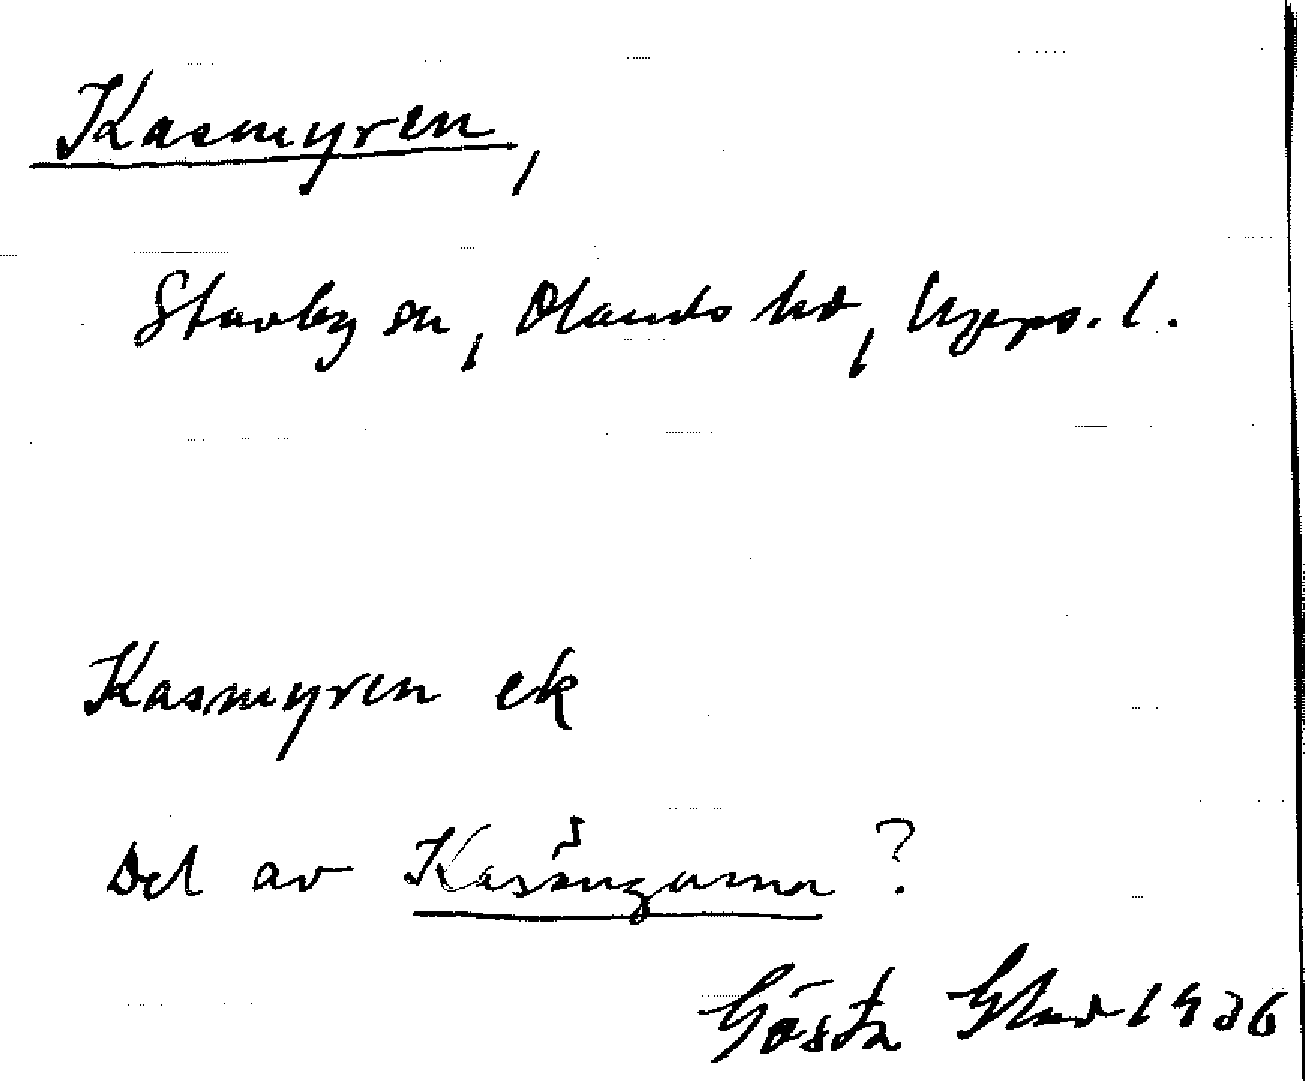 Kasmyren,
Stavby sn, Olands hd, Upps. l.
Kasmyren ek
Del av Kasängarna ?
Gösta Glad 1936